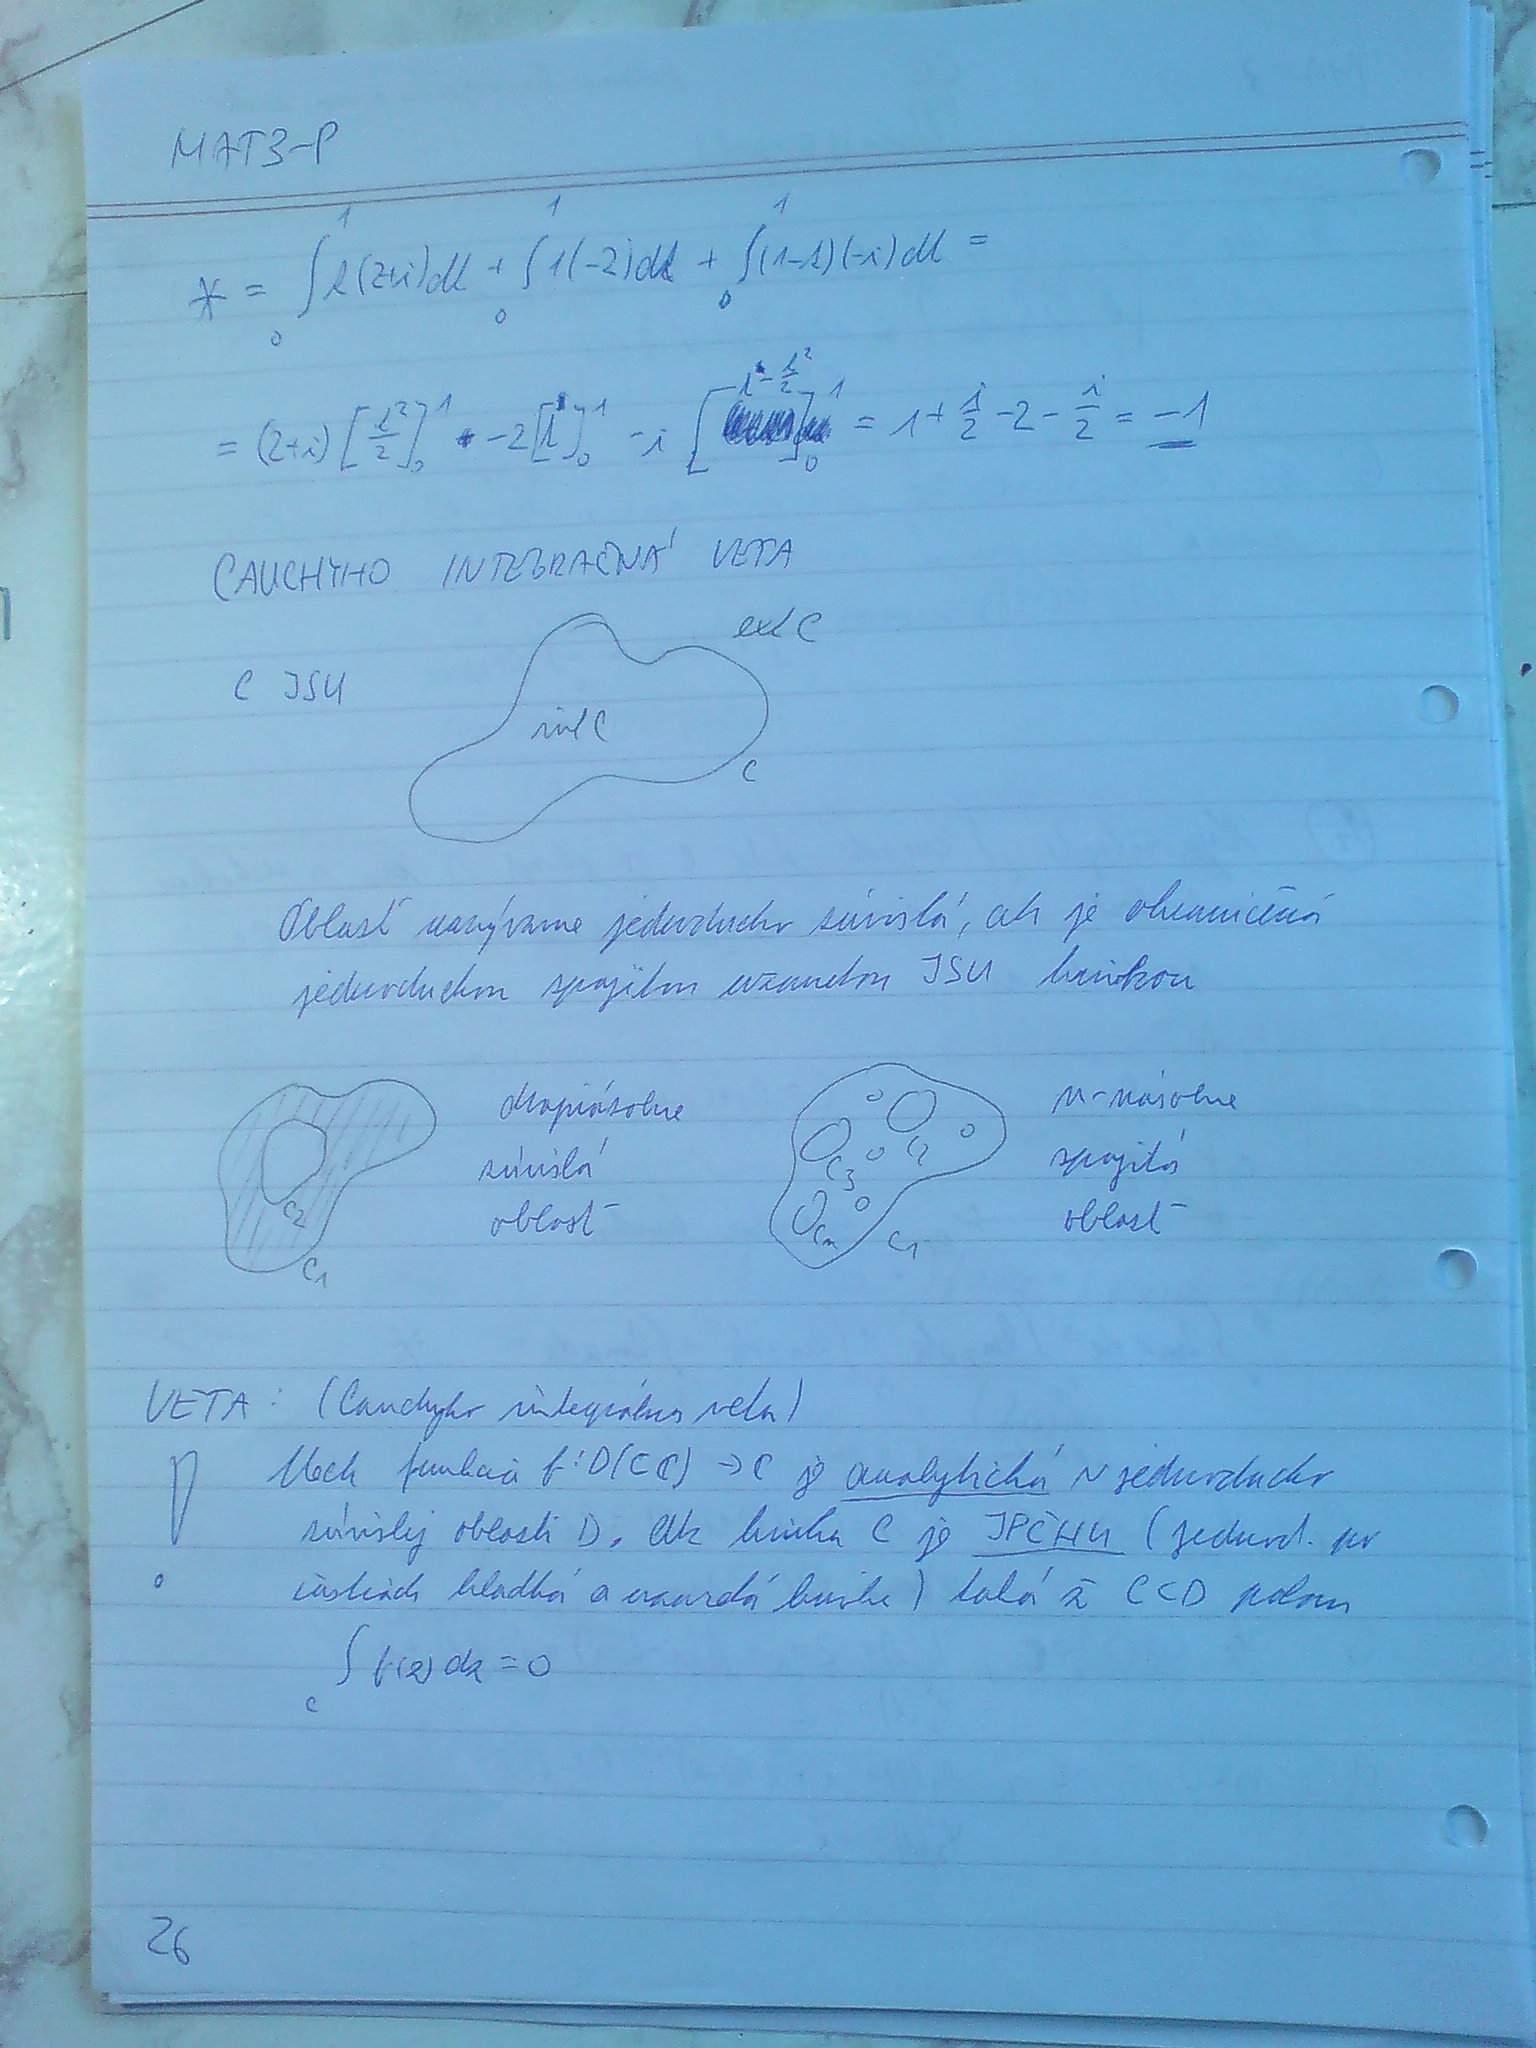 MAT3-P
* = ∫₀¹ t(2+i)dt + ∫₀¹ 1(-2)dt + ∫₀¹ (1-t)(-i)dt =
= (2+i) [t²/2]₀¹ -2[t]₀¹ -i [t - t²/2]₀¹ = 1 + i/2 - 2 - i/2 = -1
CAUCHYHO INTEGRAČNÁ VETA
ext C
C JSU
int C
C
Oblasť nazývame jednoducho súvislá, ak je ohraničená
jednoduchou spojitou uzavretou JSU krivkou
dvojnásobne
súvislá
oblasť
C2
C1
n-násobne
spojitá
oblasť
C2
C3
Cn
C1
VETA: (Cauchyho integrálna veta)
! Nech funkcia f: D(⊂ℂ) → ℂ je analytická v jednoducho
súvislej oblasti D. Ak krivka C je JPČHU (jednod. po
častiach hladká a uzavretá krivka) taká ž C⊂D potom
∫_C f(z) dz = 0
26